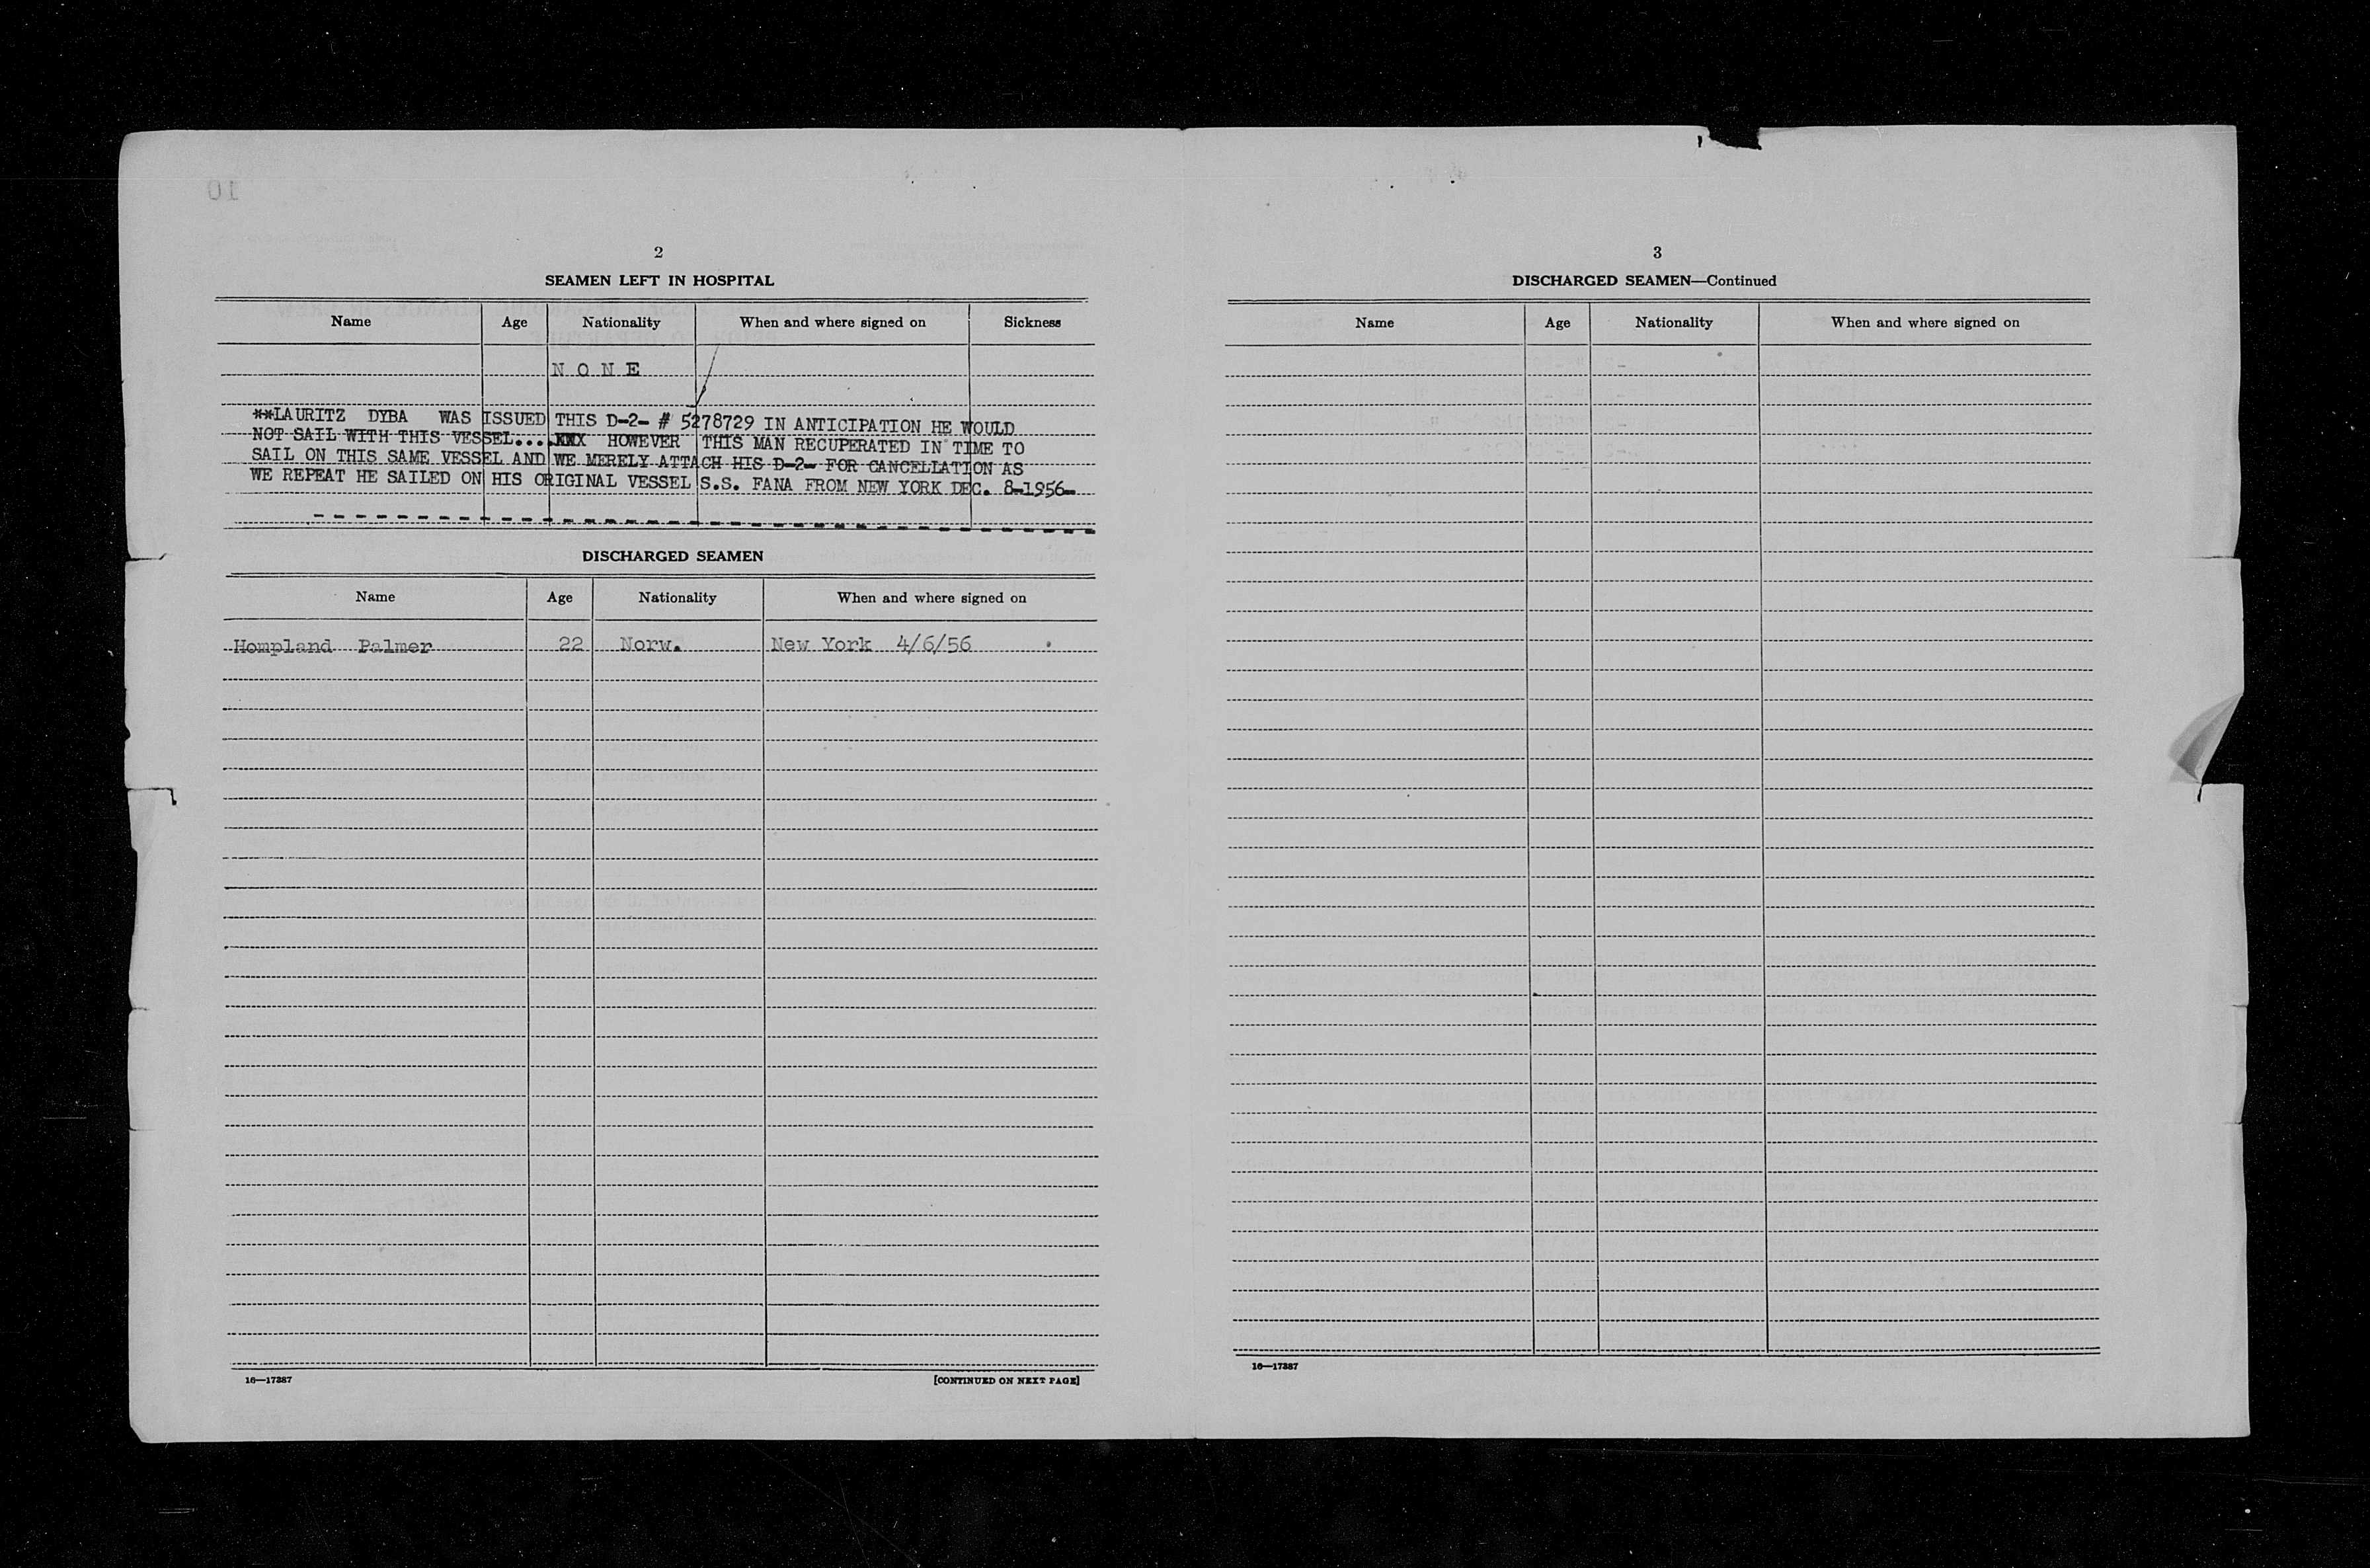 2
SEAMEN LEFT IN HOSPITAL
Name Age Nationality When and where signed on Sickness
N O N E
**LAURITZ DYBA WAS ISSUED THIS D-2- # 5278729 IN ANTICIPATION HE WOULD
NOT SAIL WITH THIS VESSEL.... HOWEVER THIS MAN RECUPERATED IN TIME TO
SAIL ON THIS SAME VESSEL AND WE MERELY ATTACH HIS D-2- FOR CANCELLATION AS
WE REPEAT HE SAILED ON HIS ORIGINAL VESSEL S.S. FANA FROM NEW YORK DEC. 8-1956-
DISCHARGED SEAMEN
Name Age Nationality When and where signed on
Hompland Palmer 22 Norw. New York 4/6/56
16—17387
[CONTINUED ON NEXT PAGE]
3
DISCHARGED SEAMEN—Continued
Name Age Nationality When and where signed on
16—17387